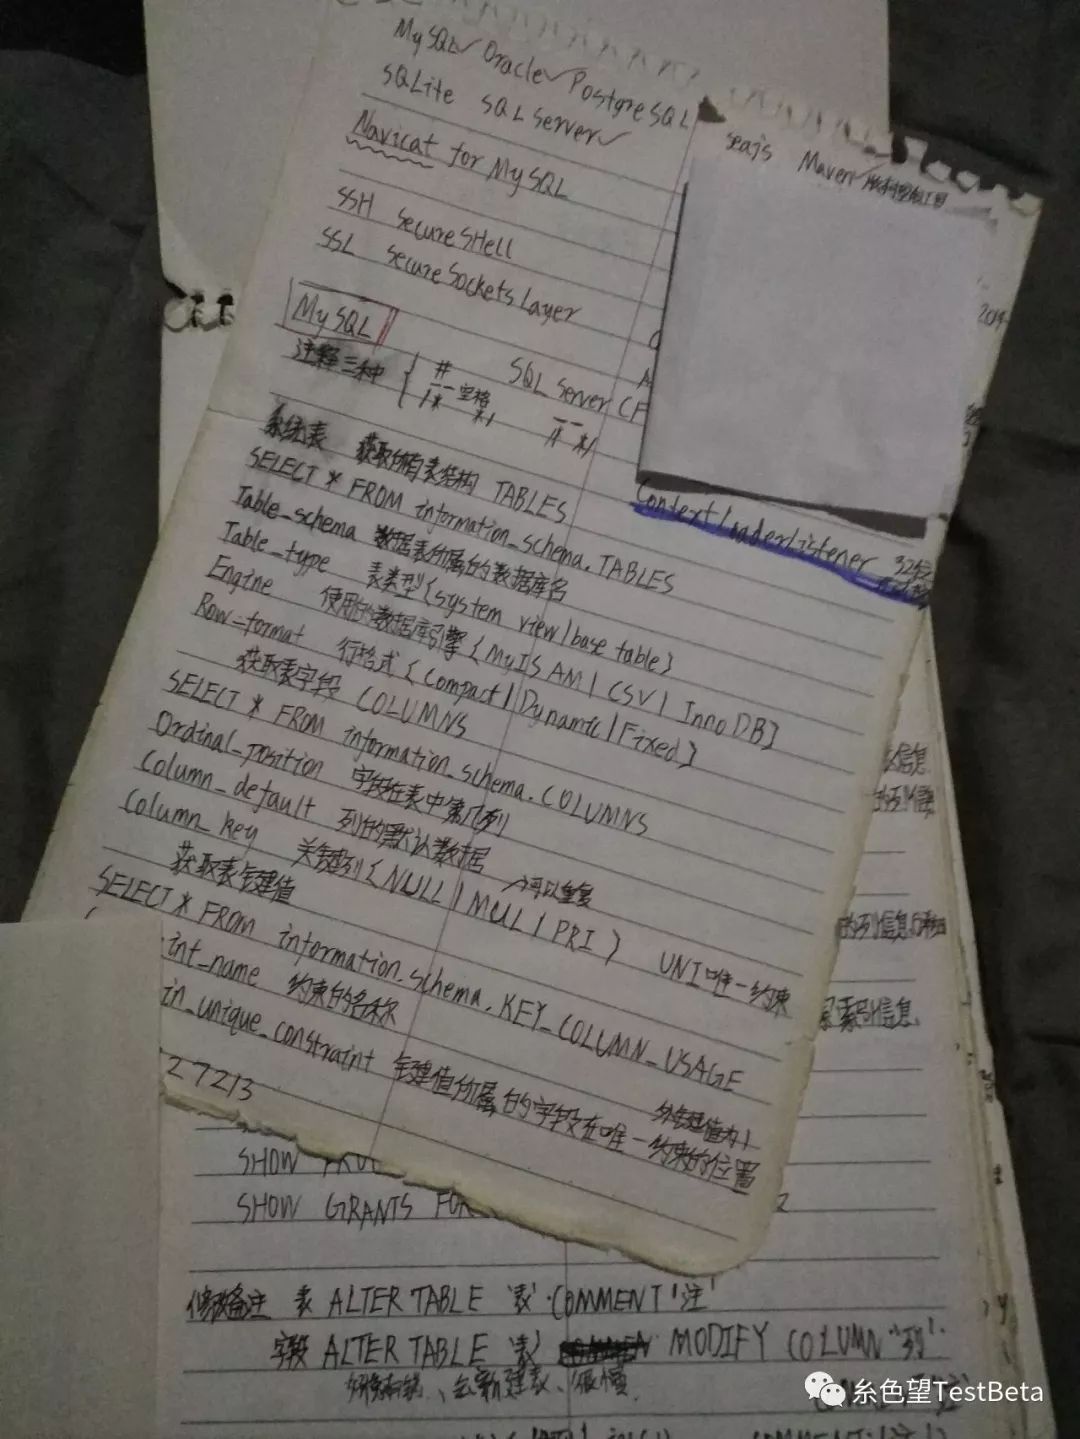 MySQL✓ Oracle✓ PostgreSQL
SQLite SQL Server✓
Navicat for MySQL
SSH SecureSHell
SSL Secure Sockets Layer
seajs Maven✓
MySQL
注释三种 { # -- 空格 /* */
SQL Server -- // */
CF
系统表 获取所有表结构 TABLES
SELECT * FROM information_schema.TABLES
Table_schema 数据表所属的数据库名
Table_type 表类型{system view|base table}
Engine 使用的数据库引擎{MyISAM|CSV|InnoDB}
Row_format 行格式{Compact|Dynamic|Fixed}
获取表字段 COLUMNS
SELECT * FROM information_schema.COLUMNS
Ordinal_position 字段在表中第几列
Column_default 列的默认数据
Column_key 关键列{NULL|MUL|PRI} UNI唯一约束
可以重复
获取表键值
SELECT * FROM information_schema.KEY_COLUMN_USAGE
int_name 约束的名称
in_unique_constraint 键值所属的字段在唯一约束的位置
外键值为1
27213
ContextLoaderListener
2014
信息
的列信息
索引信息
SHOW
SHOW GRANTS FOR
修改备注 表 ALTER TABLE '表' COMMENT '注'
字段 ALTER TABLE '表' MODIFY COLUMN '列'
会新建表、很慢
糸色望TestBeta